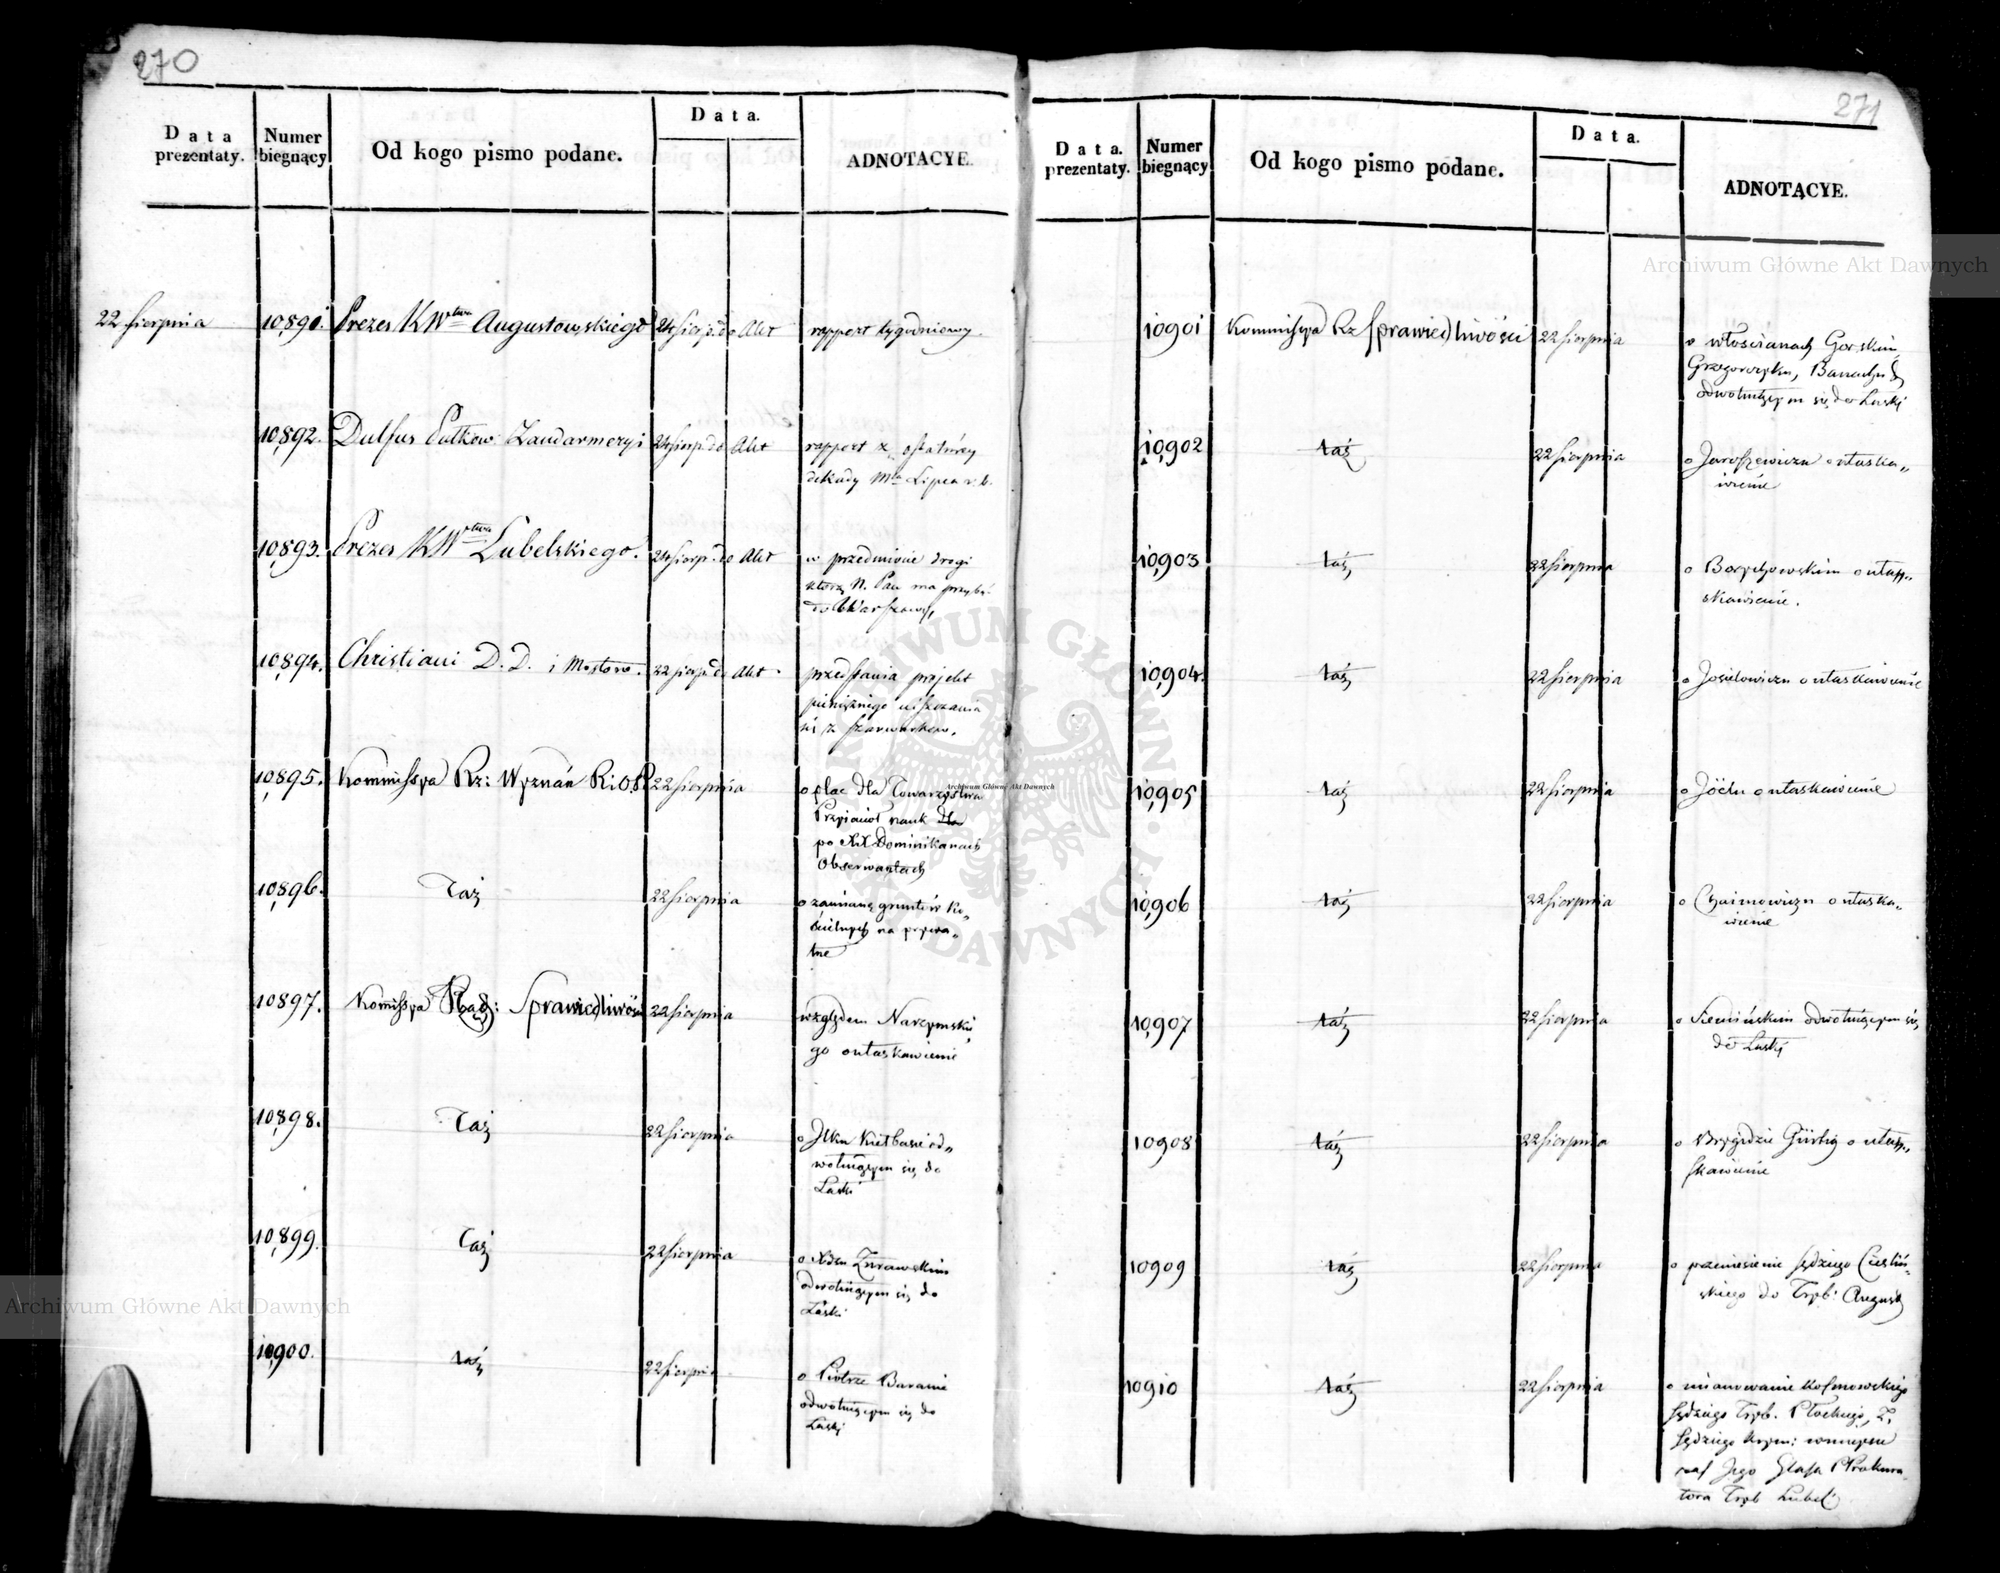 270
Data prezentaty.
Numer biegnący
Od kogo pismo podane.
Data.
ADNOTACYE.
22 Sierpnia 10,891. Prezes KWztwa Augustowskiego 24 Sierp: do Akt rapport tygodniowy.
10,892. Dulfus Pułkow: Żandarmeryi 24 Sierp: do Akt rapport z ostatniey
dekady Mca Lipca r. b.
10,893. Prezes KWztwa Lubelskiego. 24 Sierp: do Akt w przedmiocie drogi
którą N. Pan ma przybydź
do Warszawy,
10,894. Christiani D. D. i Mostow. 22 Sierp: do Akt. przedstawia projekt
pieniężnego uiszczania
się z szarwarków.
10,895. Kommissya Rz: Wyznań R i O. P. 22 Sierpnia o plac dla Towarzystwa
Przyjaciół nauk dla
po XX Dominikanach
Obserwantach
10,896. Taż 22 Sierpnia o zamianę gruntów ko„
ścielnych na prywa„
tne
10897. Komissya Rząd: Sprawiedliwości 22 Sierpnia względem Narzymskie„
go ułaskawienie
10,898. Taż 22 Sierpnia o Ilku Kiełbasie od„
wołuiącym się do
Łaski
10,899. Taż 22 Sierpnia o Żurawskim
odwołuiącym się do
Łaski
10,900. taż 22 Sierpnia o Piotrze Baranie
odwołuiącym się do
Łaski
271
Data. prezentaty.
Numer biegnący
Od kogo pismo podane.
Data.
ADNOTACYE.
10901 Kommissya Rz Sprawiedliwości 22 Sierpnia o włościanach Gorskim
Grzegorczyku,
odwołuiącym się do Łaski
10,902 taż 22 Sierpnia o Jaroszewiczu o ułaska„
wienie
10,903 taż 22 Sierpnia o Borychowskim o uła„
skawienie.
10,904. taż 22 Sierpnia o Josielowiczu o ułaskawienie
10,905 taż 22 Sierpnia o ułaskawienie
10,906 taż 22 Sierpnia o Chaimowiczu o ułaska„
wienie
10,907 taż 22 Sierpnia o Siemińskim odwołuiącym się
do Łaski
10908 taż 22 Sierpnia o Brygidzie Gürtig o uła„
skawienie
10909 taż 22 Sierpnia o przeniesienie sędziego Cieśliń„
skiego do Tryb: August
10910 taż 22 Sierpnia o mianowanie Kosmowskiego
Sędziego Tryb. Płockiego, Z.
Sędziego Krym:
Jego Prokura„
tora Tryb Lubel:
Archiwum Główne Akt Dawnych
Archiwum Główne Akt Dawnych
Archiwum Główne Akt Dawnych
ARCHIWUM GŁÓWNE AKT DAWNYCH